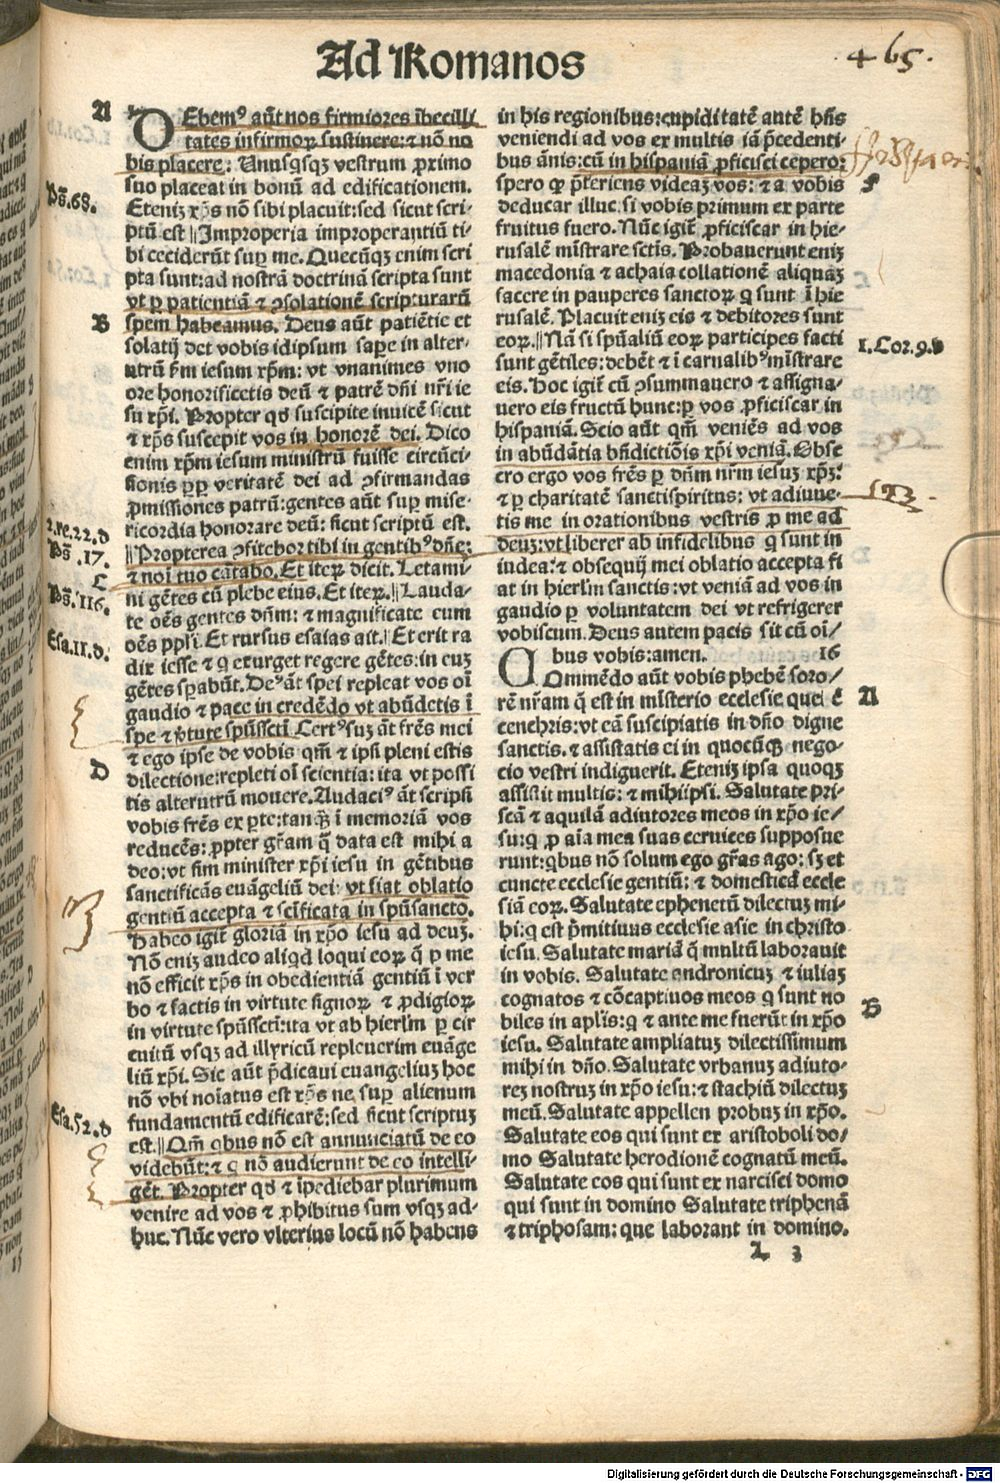 Ad Romanos
465.
A
DEbemꝰ aūt nos firmiores ībecilli
tates infirmoꝝ sustinere: ⁊ nō no
bis placere: Unusqsqꝫ vestrum proximo
suo placeat in bonū ad edificationem.
Ps̄.68.
Eteniꝫ xp̄s nō sibi placuit: sed sicut scri-
ptū est || Improperia improperantiū ti-
bi ceciderūt suꝑ me. Quecūqꝫ enim scri
pta sunt: ad nostrā doctrinā scripta sunt
vt ꝑ patientiā ⁊ ꝯsolationē scripturarū
B
spem habeamus. Deus aūt patiētie et
solatij det vobis idipsum sapere in alter-
utrū ẜm iesum xp̄m: vt vnanimes vno
ore honorificetis deū ⁊ patrē dn̄i nr̄i ie
su xp̄i. Propter qd̄ suscipite inuicē sicut
⁊ xp̄s suscepit vos in honorē dei. Dico
enim xp̄m iesum ministrū fuisse circūci-
sionis ꝓpꝑ veritatē dei ad ꝯfirmandas
ꝓmissiones patrū: gentes aūt suꝑ mise-
ricordia honorare deū: sicut scriptū est.
2.re.22.d
Ps̄.17.
|| Propterea ꝯfitebor tibi in gentibꝰ dn̄e:
C
⁊ noī tuo cātabo. Et iteꝝ dicit. Letami-
Ps̄.116.
ni gētes cū plebe eius. Et iteꝝ. || Lauda-
te oēs gentes dn̄m: ⁊ magnificate eum
Esa.11.d.
oēs ppl̄i. Et rursus esaias ait. | Et erit ra
dix iesse ⁊ q exurget regere gētes: in euꝫ
gētes sꝑabūt. Deꝰ āt spei repleat vos oī
gaudio ⁊ pace in credēdo vt abūdetis ī
spe ⁊ v̄tute spūssctī. Certꝰ suꝫ āt frēs mei
⁊ ego ipse de vobis qm̄ ⁊ ipsi pleni estis
D
dilectione: repleti oī scientia: ita vt possi
tis alterutrū mouere. Audaciꝰ āt scripsi
vobis frēs ex ꝑte: tanq̄ꝫ ī memoriā vos
reducēs: ꝓpter gr̄am q̄ data est mihi a
deo: vt sim minister xp̄i iesu in gētibus
sanctificās euāgeliū dei: vt fiat oblatio
gentiū accepta ⁊ scīficata in spūsancto.
Habeo igit̄ gloriā in xp̄o iesu ad deuꝫ.
Nō eniꝫ audeo aliqd loqui eoꝝ q̄ ꝑ me
nō efficit xp̄s in obedientiā gentiū ī ver
bo ⁊ factis in virtute signoꝝ ⁊ ꝓdigioꝝ
in virtute spūssctī: ita vt ab hierl̄m ꝑ cir
cuitū vsqꝫ ad illyricū repleuerim euāge
liū xp̄i. Sic aūt p̄dicaui euangeliuꝫ hoc
nō vbi noīatus est xp̄s ne suꝑ alienum
Esa.52.d
fundamentū edificarē: sed sicut scriptuꝫ
est. || Qm̄ qbus nō est annunciatū de eo
videbūt: ⁊ q nō audierunt de eo intelli-
gēt. Propter qd̄ ⁊ īpediebar plurimum
venire ad vos ⁊ ꝓhibitus sum vsqꝫ ad-
huc. Nūc vero vlterius locū nō habens
in his regionibus: cupiditatē autē hn̄s
veniendi ad vos ex multis iā p̄cedenti-
bus ānis: cū in hispaniā ꝓficisci cepero:
spero ꝙ p̄teriens videaꝫ vos: ⁊ a vobis
deducar illuc, si vobis primum ex parte
fruitus fuero. Nūc igit̄ ꝓficiscar in hie-
rusalē mīstrare sctīs. Probauerunt eniꝫ
macedonia ⁊ achaia collationē aliquaꝫ
facere in pauperes sanctoꝝ q sunt ī hie
rusalē. Placuit eniꝫ eis ⁊ debitores sunt
eoꝝ. || Nā si spūaliū eoꝝ participes facti
1.Cor.9.b
sunt gētiles: debēt ⁊ ī carnalibꝰ mīstrare
eis. Hoc igit̄ cū ꝯsummauero ⁊ assigna-
uero eis fructū hunc: ꝑ vos ꝓficiscar in
hispaniā. Scio aūt qm̄ veniēs ad vos
in abūdātia bn̄dictiōis xp̄i veniā. Obse
cro ergo vos frēs ꝑ dn̄m nr̄m iesuꝫ xp̄ꝫ:
⁊ ꝑ charitatē sanctispiritus: vt adiuue-
tis me in orationibus vestris ꝓ me ad
deuꝫ: vt liberer ab infidelibus q sunt in
iudea: ⁊ obsequij mei oblatio accepta fi
at in hierl̄m sanctis: vt veniā ad vos in
gaudio ꝑ voluntatem dei vt refrigerer
vobiscum. Deus autem pacis sit cū oī/
bus vobis: amen. 16
COmmēdo aūt vobis phebēn soro/
A
rē nr̄am q̄ est in mīsterio ecclesie que ē
cenchris: vt eā suscipiatis in dn̄o digne
sanctis. ⁊ assistatis ei in quocūqꝫ nego-
cio vestri indiguerit. Eteniꝫ ipsa quoqꝫ
assistit multis: ⁊ mihiipsi. Salutate pri-
scā ⁊ aquilā adiutores meos in xp̄o ie/
su: q ꝓ aīa mea suas ceruices supposue
runt: qbus nō solum ego gr̄as ago: sꝫ et
cuncte ecclesie gentiū: ⁊ domesticā eccle
siā eoꝝ. Salutate ephenetū dilectuꝫ mi-
hi: q est p̄mitiuus ecclesie asie in christo
iesu. Salutate mariā q̄ multū laborauit
in vobis. Salutate andronicuꝫ ⁊ iuliaꝫ
cognatos ⁊ cōcaptiuos meos q sunt no
B
biles in apl̄is: q ⁊ ante me fuerūt in xp̄o
iesu. Salutate ampliatuꝫ dilectissimum
mihi in dn̄o. Salutate vrbanuꝫ adiuto-
reꝫ nostruꝫ in xp̄o iesu: ⁊ stachiū dilectuꝫ
meū. Salutate appellen probuꝫ in xp̄o.
Salutate eos qui sunt ex aristoboli do/
mo Salutate herodionē cognatū meū.
Salutate eos qui sunt ex narcisci domo
qui sunt in domino Salutate triphenā
⁊ triphosam: que laborant in domino.
L 3
Digitalisierung gefördert durch die Deutsche Forschungsgemeinschaft - DFG